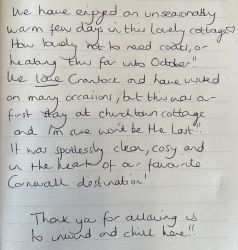 We have enjoyed an unseasonably
warm few days in this lovely cottage♡
How lovely not to need coats, or
heating this far into October!!
We love Crantock and have visited
on many occasions, but this was our
first stay at churchtown cottage
and I'm sure won't be the last!!
It was spotlessly clean, cosy and
in the heart of our favourite
Cornwall destination!
Thank you for allowing us
to unwind and chill here!!